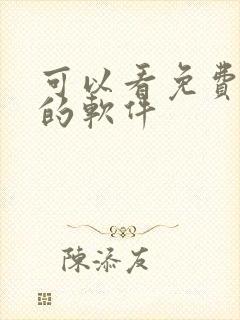 可以看免費
的軟件
陳添友